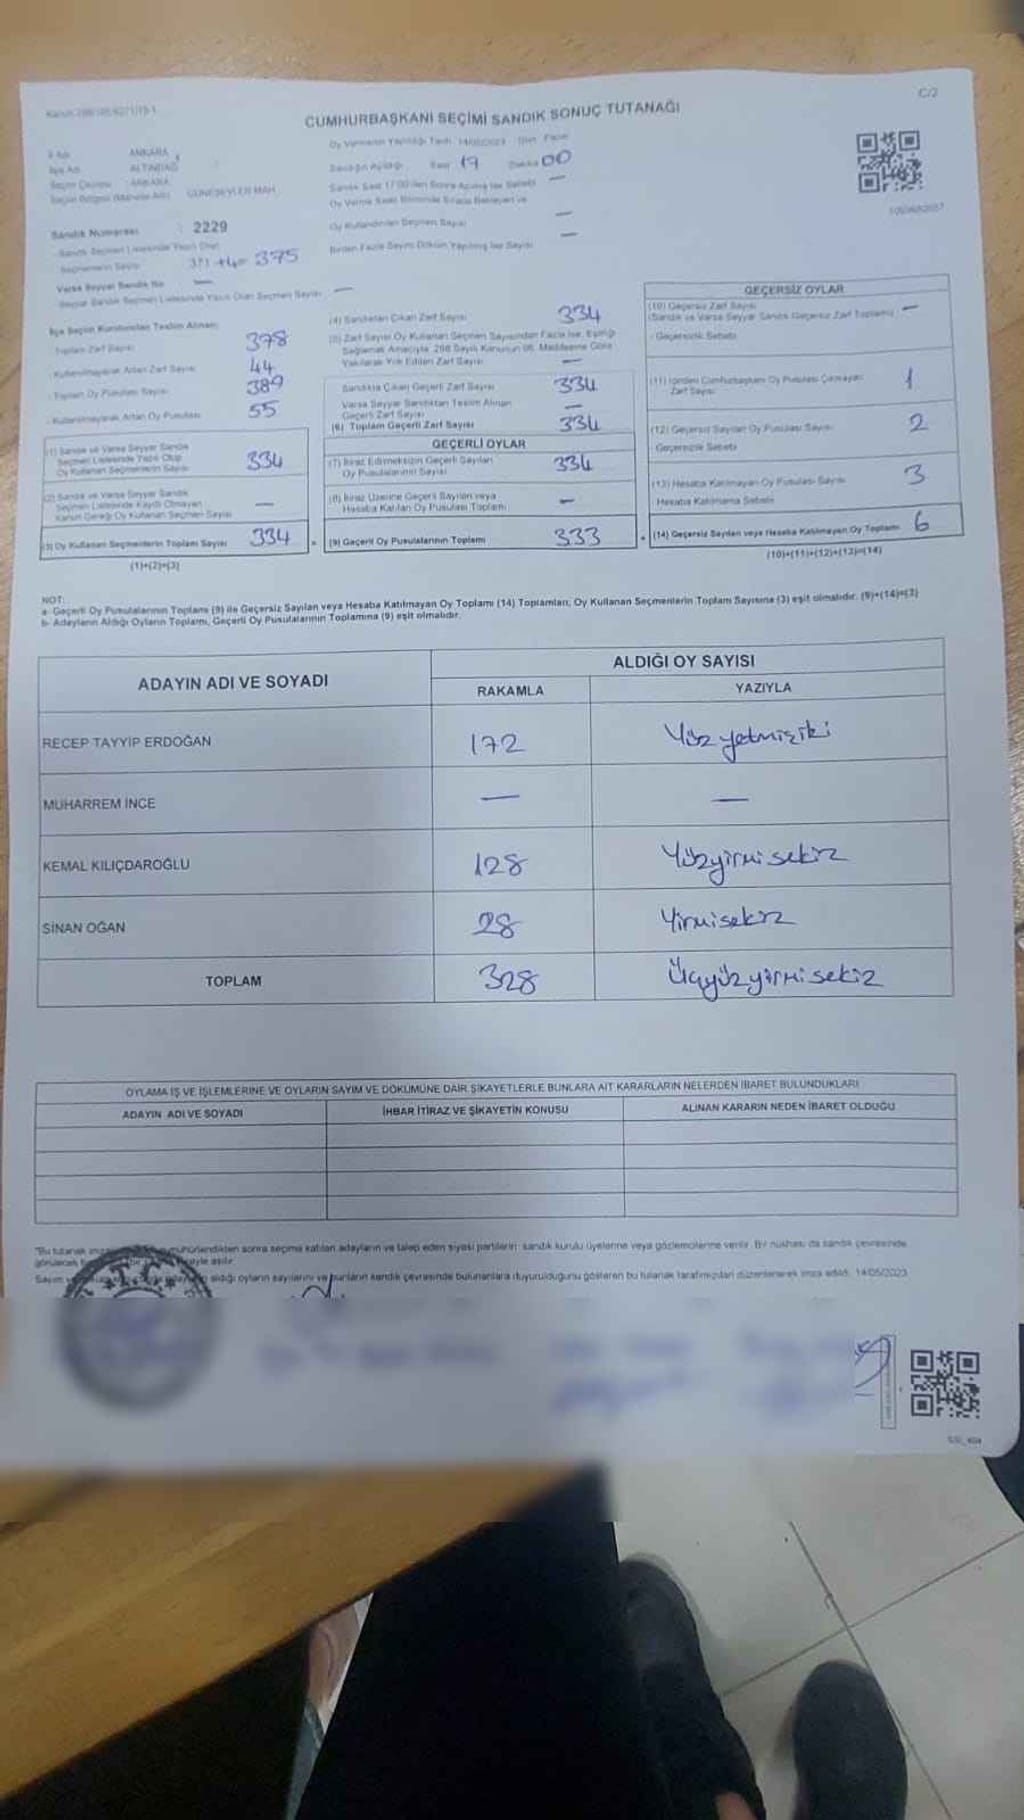 C/2
CUMHURBAŞKANI SEÇİMİ SANDIK SONUÇ TUTANAĞI
İl Adı ANKARA
İlçe Adı ALTINDAĞ
Seçim Çevresi ANKARA
Seçim Bölgesi (Mahalle Adı) GÜNEŞEVLER MAH.
Oy Vermenin Yapıldığı Tarih 14/05/2023
Sandığın Açıldığı Saat 17 Dakika 00
Sandık Numarası : 2229
371 +4= 375
Varsa Seyyar Sandık No —
Seyyar Sandık Seçmen Listesinde Yazılı Olan Seçmen Sayısı —
Birden Fazla Sayım Döküm Yapılmış İse Sayısı —
İlçe Seçim Kurulundan Teslim Alınan;
- Toplam Zarf Sayısı 378
- Kullanılmayarak Artan Zarf Sayısı 44
- Toplam Oy Pusulası Sayısı 389
- Kullanılmayarak Artan Oy Pusulası 55
(1) Sandık ve Varsa Seyyar Sandık
Seçmen Listesinde Yazılı Olup
Oy Kullanan Seçmenlerin Sayısı 334
(2) Sandık ve Varsa Seyyar Sandık
Seçmen Listesinde Kayıtlı Olmayan
Kanun Gereği Oy Kullanan Seçmen Sayısı —
(3) Oy Kullanan Seçmenlerin Toplam Sayısı 334
(1)+(2)=(3)
(4) Sandıktan Çıkan Zarf Sayısı 334
(5) Zarf Sayısı Oy Kullanan Seçmen Sayısından Fazla İse, Eşitliği
Sağlamak Amacıyla, 298 Sayılı Kanunun 98. Maddesine Göre
Yakılarak Yok Edilen Zarf Sayısı —
Sandıkta Çıkan Geçerli Zarf Sayısı 334
Varsa Seyyar Sandıktan Teslim Alınan
Geçerli Zarf Sayısı —
(6) Toplam Geçerli Zarf Sayısı 334
GEÇERLİ OYLAR
(7) İtiraz Edilmeksizin Geçerli Sayılan
Oy Pusulalarının Sayısı 334
(8) İtiraz Üzerine Geçerli Sayılan veya
Hesaba Katılan Oy Pusulası Toplamı —
(9) Geçerli Oy Pusulalarının Toplamı 333
GEÇERSİZ OYLAR
(10) Geçersiz Zarf Sayısı
(Sandık ve Varsa Seyyar Sandık Geçersiz Zarf Toplamı) —
- Geçersizlik Sebebi
(11) İçinden Cumhurbaşkanı Oy Pusulası Çıkmayan
Zarf Sayısı 1
(12) Geçersiz Sayılan Oy Pusulası Sayısı 2
Geçersizlik Sebebi
(13) Hesaba Katılmayan Oy Pusulası Sayısı 3
Hesaba Katılmama Sebebi
(14) Geçersiz Sayılan veya Hesaba Katılmayan Oy Toplamı 6
(10)+(11)+(12)+(13)=(14)
NOT:
a- Geçerli Oy Pusulalarının Toplamı (9) ile Geçersiz Sayılan veya Hesaba Katılmayan Oy Toplamı (14) Toplamları, Oy Kullanan Seçmenlerin Toplam Sayısına (3) eşit olmalıdır. (9)+(14)=(3)
b- Adayların Aldığı Oyların Toplamı, Geçerli Oy Pusulalarının Toplamına (9) eşit olmalıdır.
ADAYIN ADI VE SOYADI ALDIĞI OY SAYISI
RAKAMLA YAZIYLA
RECEP TAYYİP ERDOĞAN 172 Yüz yetmişiki
MUHARREM İNCE — —
KEMAL KILIÇDAROĞLU 128 Yüzyirmi sekiz
SİNAN OĞAN 28 Yirmisekiz
TOPLAM 328 Üçyüzyirmi sekiz
OYLAMA İŞ VE İŞLEMLERİNE VE OYLARIN SAYIM VE DÖKÜMÜNE DAİR ŞİKAYETLERLE BUNLARA AİT KARARLARIN NELERDEN İBARET BULUNDUKLARI
ADAYIN ADI VE SOYADI İHBAR İTİRAZ VE ŞİKAYETİN KONUSU ALINAN KARARIN NEDEN İBARET OLDUĞU
mühürlendikten sonra seçime katılan adayların ve talep eden siyasi partilerin sandık kurulu üyelerine veya gözlemcilerine verilir. Bir nüshası da sandık çevresinde
aldığı oyların sayılarını ve bunların sandık çevresinde bulunanlara duyurulduğunu gösteren bu tutanak tarafımızdan düzenlenerek imza edildi. 14/05/2023